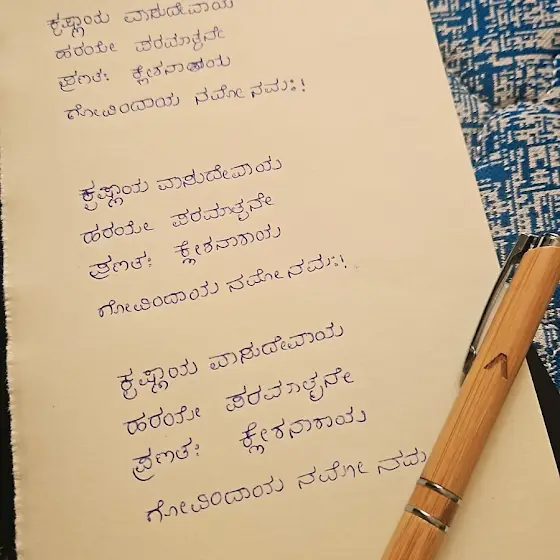 ಕೃಷ್ಣಾಯ ವಾಸುದೇವಾಯ
ಹರಯೇ ಪರಮಾತ್ಮನೇ
ಪ್ರಣತಃ ಕ್ಲೇಶನಾಶಾಯ
ಗೋವಿಂದಾಯ ನಮೋ ನಮಃ!
ಕೃಷ್ಣಾಯ ವಾಸುದೇವಾಯ
ಹರಯೇ ಪರಮಾತ್ಮನೇ
ಪ್ರಣತಃ ಕ್ಲೇಶನಾಶಾಯ
ಗೋವಿಂದಾಯ ನಮೋ ನಮಃ!
ಕೃಷ್ಣಾಯ ವಾಸುದೇವಾಯ
ಹರಯೇ ಪರಮಾತ್ಮನೇ
ಪ್ರಣತಃ ಕ್ಲೇಶನಾಶಾಯ
ಗೋವಿಂದಾಯ ನಮೋ ನಮ